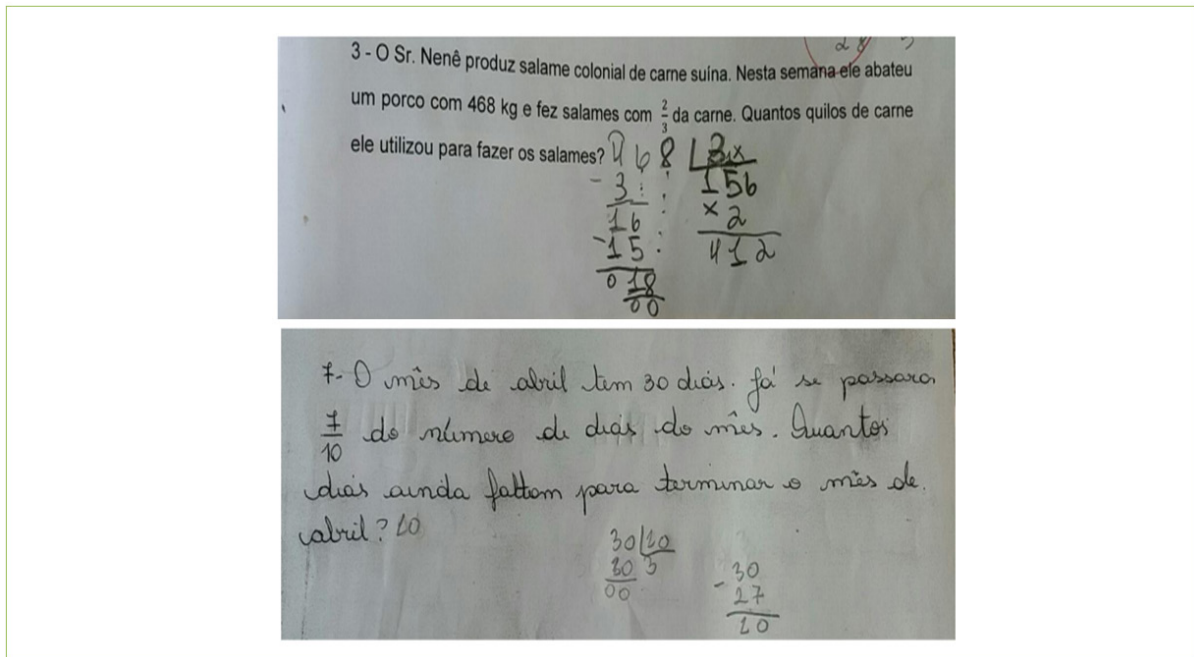 28
3 - O Sr. Nenê produz salame colonial de carne suína. Nesta semana ele abateu
um porco com 468 kg e fez salames com 2/3 da carne. Quantos quilos de carne
ele utilizou para fazer os salames? 468 3x
- 3 156
16 × 2
- 15 412
0 18
00
7- O mês de abril tem 30 dias. Já se passara
7/10 do número de dias do mês. Quantos
dias ainda faltam para terminar o mês de
abril? 10
30 10
30 3 - 30
00 27
10